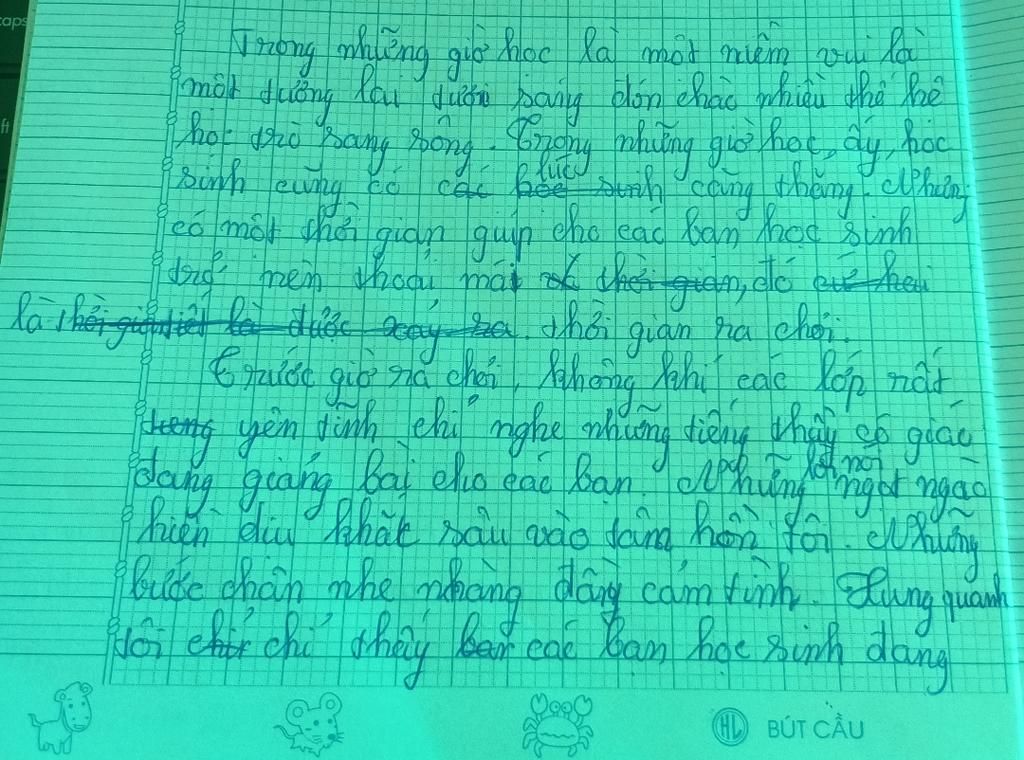 Trong những giờ học là một niềm vui là
một đường lái đươn sáng đón chào nhiều thế hệ
học trò sang sông. Trong những giờ học, ấy, học
sinh cũng có các học sinh lúc căng thẳng. Nhưng
có một thời gian giúp cho các bạn học sinh
trở nên thoải mái thời gian, đó
là thời gian ra chơi.
Trước giờ ra chơi, không khí các lớp rất
yên tĩnh chỉ nghe những tiếng thầy cô giáo
đang giảng bài cho các bạn. Những lời nói ngọt ngào
hiền dịu khắc sâu vào tâm hồn tôi. Những
bước chân nhẹ nhàng đầy cảm tình. Xung quanh
tôi chỉ thấy các bạn học sinh đang
HL BÚT CẦU
caps